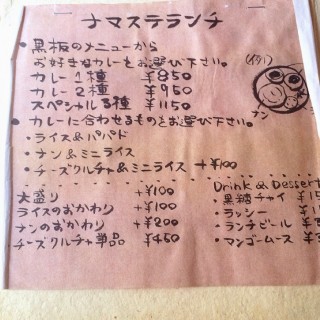 ナマステランチ
• 黒板のメニューから
お好きなカレーをお選び下さい。
カレー1種 ¥850
カレー2種 ¥950
スペシャル3種 ¥1150
• カレーに合わせるものをお選び下さい。
・ライス&パパド
・ナン&ミニライス
・チーズクルチャ&ミニライス +¥100
大盛り +¥100
ライスのおかわり +¥100
ナンのおかわり +¥200
チーズクルチャ単品 ¥450
ナン
Drink & Dessert
・黒糖チャイ
・ラッシー
・ランチビール
・マンゴームース